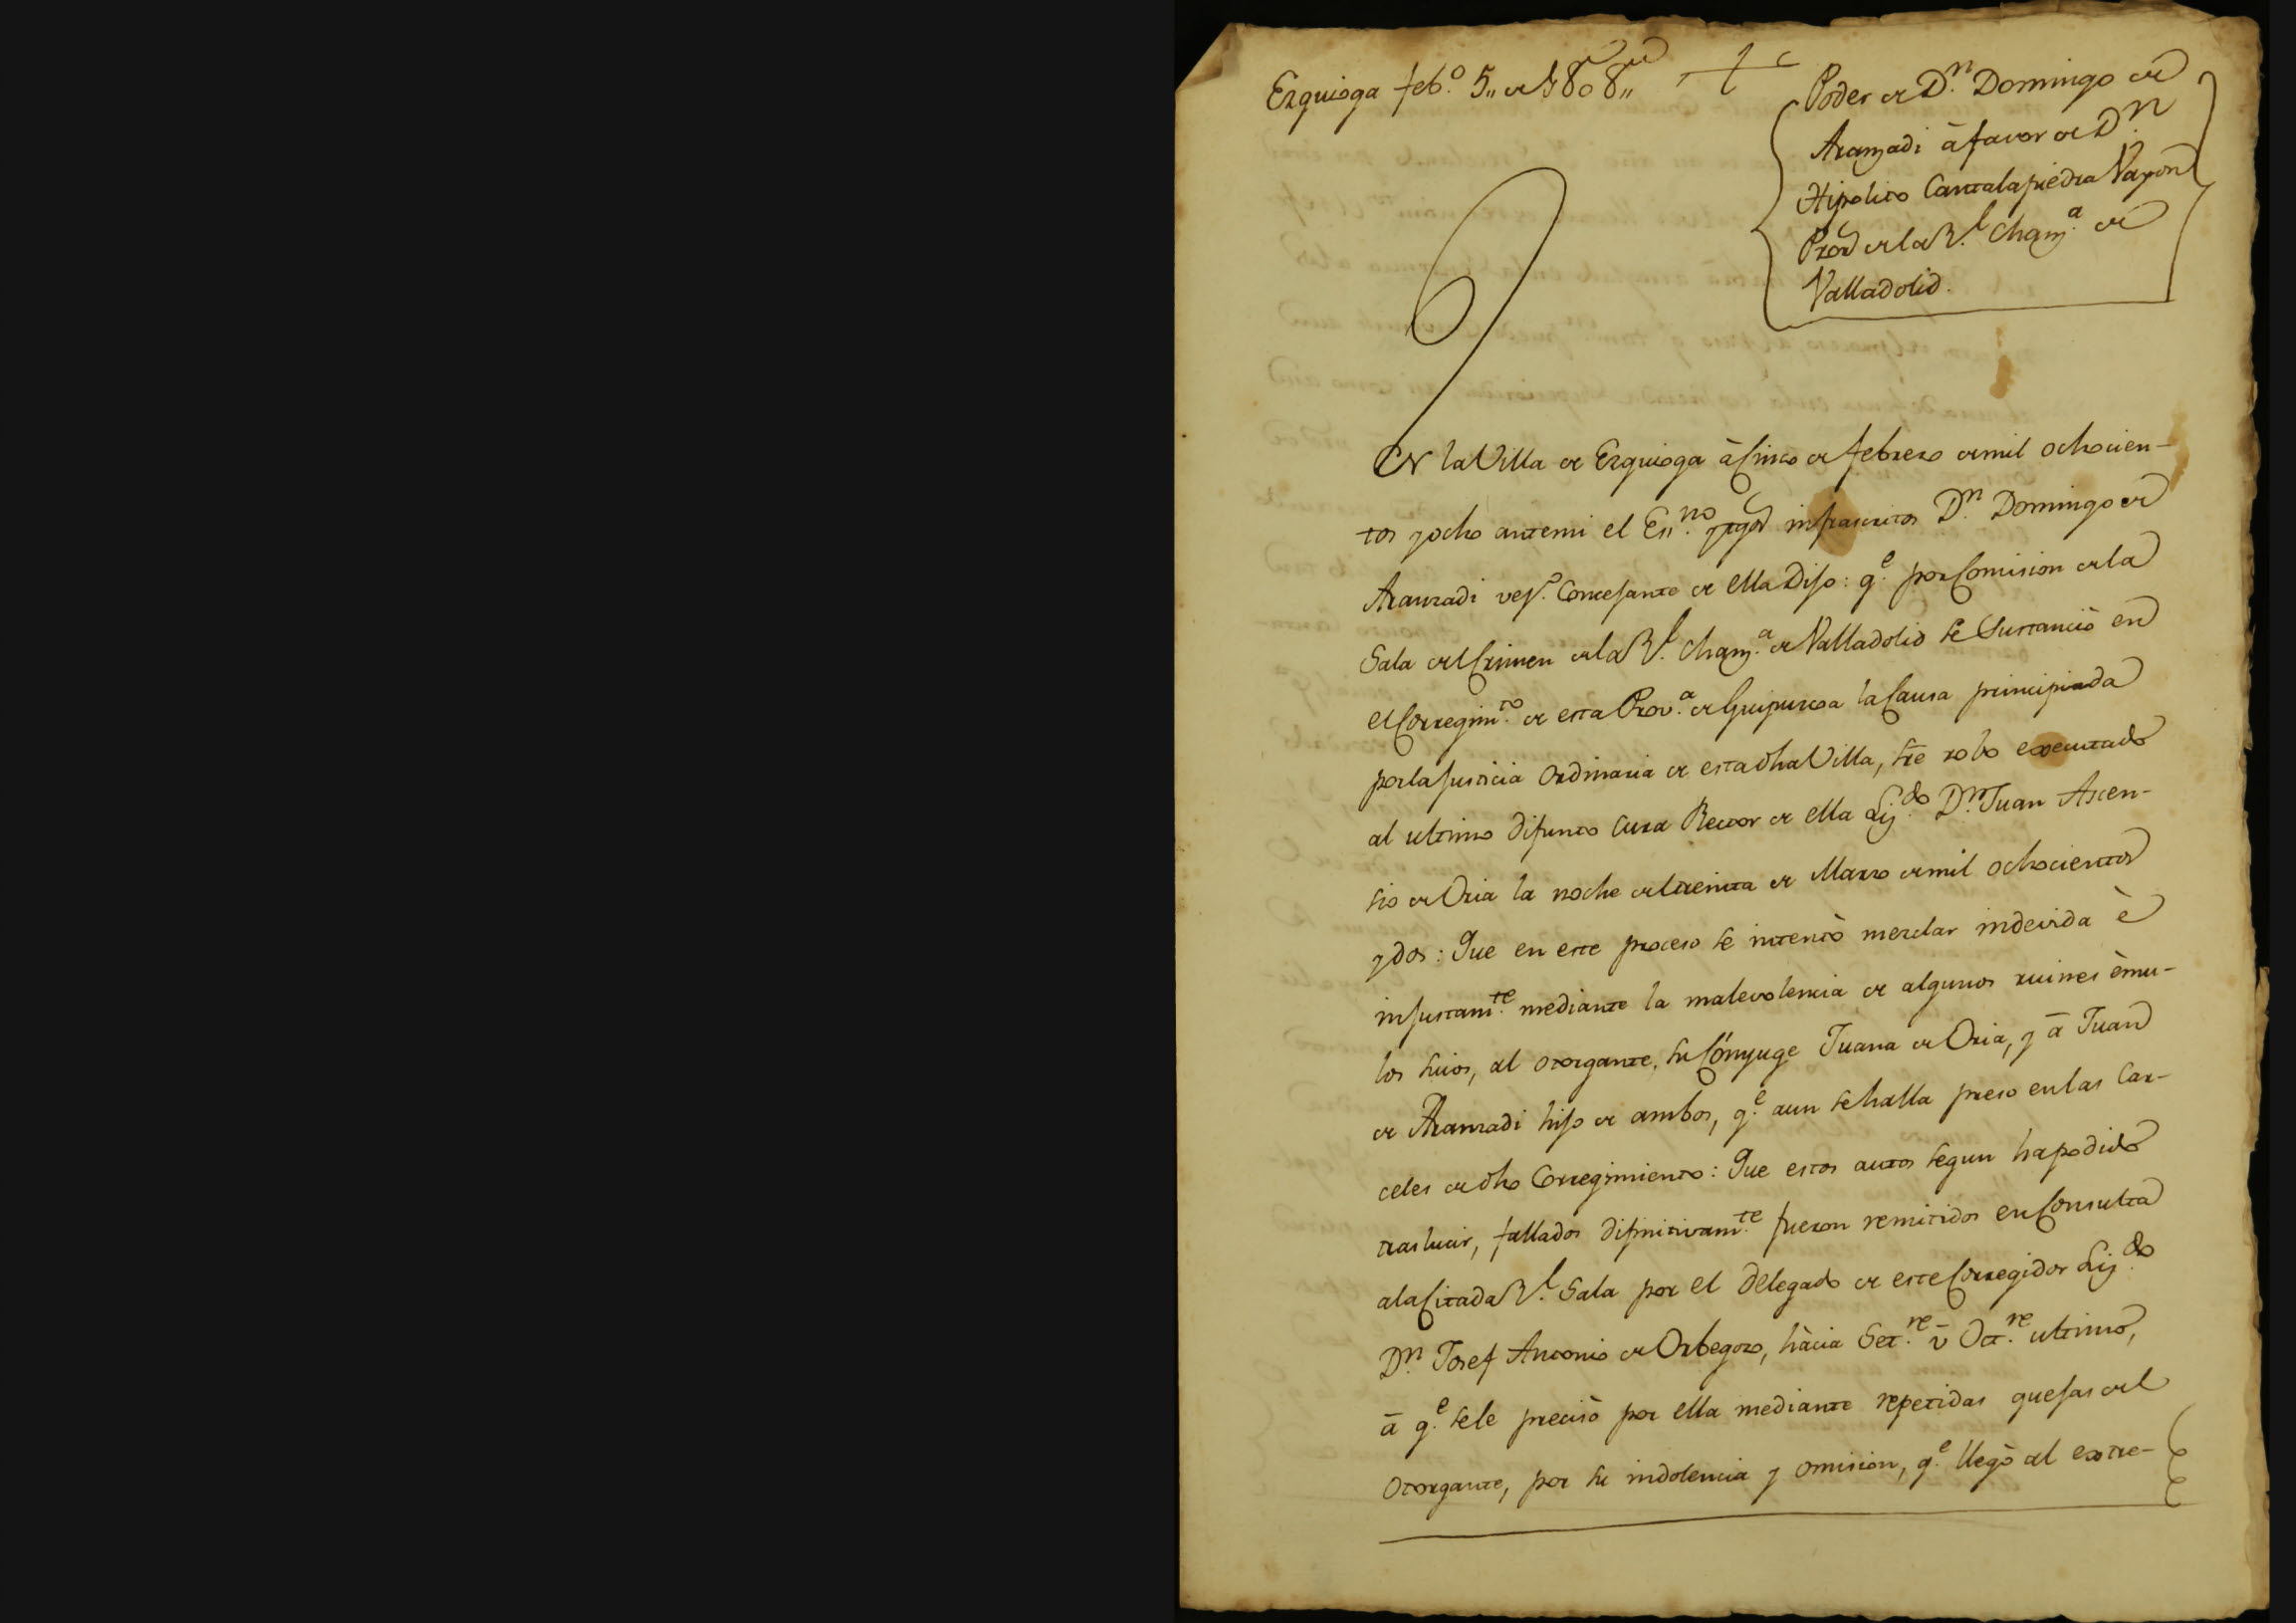 Ezquioga feb.º 5,, de 1808,,
Poder de D.n Domingo de
Aranzadi à favor de D.n
Hipolito Cantalapiedra Vayon
Pror de la R.l Chanz.a de
Valladolid.
En la Villa de Ezquioga à Cinco de febrero de mil ochocien-
tos y ocho ante mi el Es.no y tgos infrascritos D.n Domingo de
Aranzadi vez.º Concejante de ella Dijo: q.e por Comision de la
Sala del Crimen de la R.l Chanz.a de Valladolid se Sustanciò en
el Corregim.to de esta Prov.a de Guipuzcoa la Causa principiada
por la Justicia Ordinaria de esta dha Villa, sre robo executado
al ultimo difunto Cura Rector de ella Liz.do D.n Juan Ascen-
sio de Oria la noche del treinta de Marzo de mil ochocientos
y dos: Que en este proceso se intentò mezclar indevida è
injustam.te mediante la malevolencia de algunos ruines èmu-
los suios, al otorgante, su Cónyuge Juana de Oria, y à Juan
de Aranzadi hijo de ambos, q.e aun se halla preso en las Car-
celes de dho Corregimiento: Que estos autos segun ha podido
traslucir, fallados difinitivam.te fueron remitidos en Consulta
a la Citada R.l Sala por el delegado de este Corregidor Liz.do
D.n Josef Antonio de Orbegozo, hàcia Set.re ù Oct.re ultimo,
à q.e se le precisò por ella mediante repetidas quejas del
Otorgante, por su indolencia y omision, q.e llegò al extre-